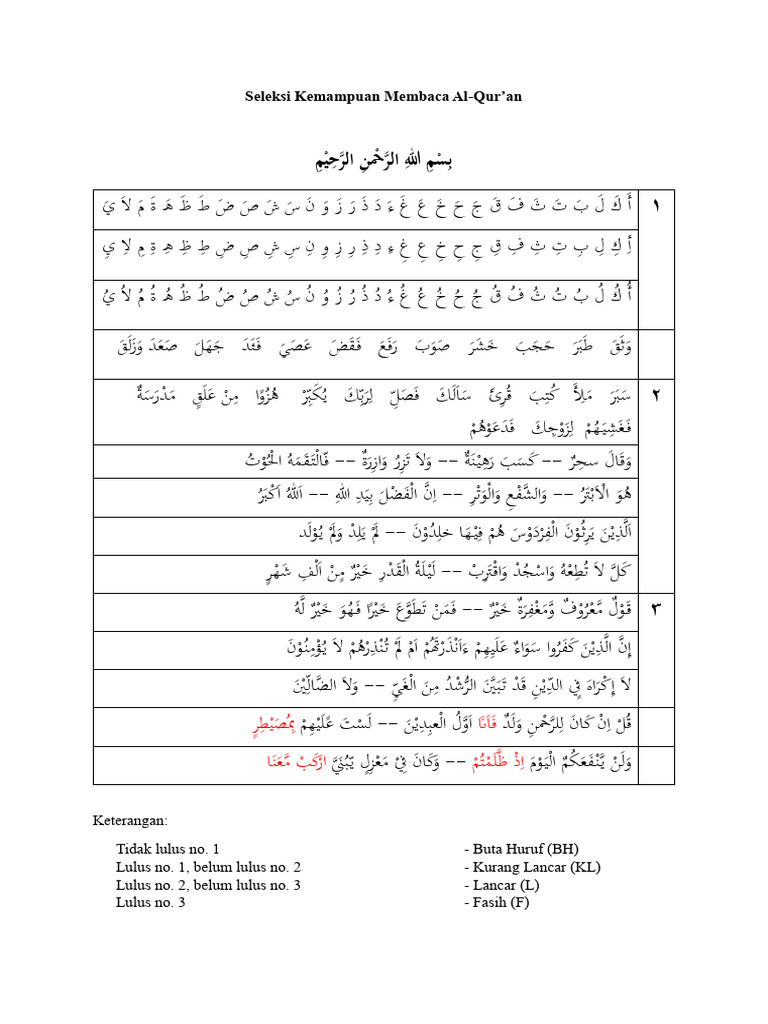 Seleksi Kemampuan Membaca Al-Qur’an
بِسْمِ اللهِ الرَّحْمنِ الرَّحِيْمِ
١
أَ كَ لَ بَ تَ ثَ فَ قَ جَ حَ خَ عَ غَ ءَ دَ ذَ رَ زَ وَ نَ سَ شَ صَ ضَ طَ ظَ هَ ةَ مَ لاَ يَ
أِ كِ لِ بِ تِ ثِ فِ قِ جِ حِ خِ عِ غِ ءِ دِ ذِ رِ زِ وِ نِ سِ شِ صِ ضِ طِ ظِ هِ ةِ مِ لاِ يِ
أُ كُ لُ بُ تُ ثُ فُ قُ جُ حُ خُ عُ غُ ءُ دُ ذُ رُ زُ وُ نُ سُ شُ صُ ضُ طُ ظُ هُ ةُ مُ لاُ يُ
وَثَقَ طَبَرَ حَجَبَ خَشَرَ صَوَبَ رَفَعَ فَقَضَ عَصَيَ فَئَدَ جَهَلَ صَعَدَ وَزَلَقَ
٢
سَبَرَ مَلِأَ كُتِبَ قُرِئَ سَاَلَكَ فَصَلِّ لِرَبِّكَ يُكَبِّرْ هُزُوًا مِنْ عَلَقٍ مَدْرَسَةٌ
فَغَشِيَهُمْ لِزَوْجِكَ فَدَعَوْهُمْ
وَقَالَ سحِرٌ –– كَسَبَ رَهِيْنَةٌ –– وَلاَ تَزِرُ وَازِرَةٌ –– فَالْتَقَمَهُ الْحُوْتُ
هُوَ الْاَبْتَرُ –– وَالشَّفْعِ وَالْوَتْرِ –– اِنَّ الْفَضْلَ بِيَدِ اللهِ –– اَللهُ اَكْبَرُ
اَلَّذِيْنَ يَرِثُوْنَ الْفِرْدَوْسَ هُمْ فِيْهَا خلِدُوْنَ –– لَمْ يَلِدْ وَلَمْ يُوْلَد
كَلَّ لاَ تُطِعْهُ وَاسْجُدْ وَاقْتَرِبْ –– لَيْلَةُ الْقَدْرِ خَيْرٌ مِنْ اَلْفِ شَهْرٍ
٣
قَوْلٌ مَّعْرُوْفٌ وَّمَغْفِرَةٌ خَيْرٌ –– فَمَنْ تَطَوَّعَ خَيْرًا فَهُوَ خَيْرٌ لَّهُ
إِنَّ الَّذِيْنَ كَفَرُوا سَوَاءٌ عَلَيهِمْ ءَاَنْذَرْتَهُمْ اَمْ لَمْ تُنْذِرْهُمْ لاَ يُؤْمِنُوْنَ
لاَ إِكْرَاهَ فِي الدِّيْنِ قَدْ تَبَيَّنَ الرُّشْدُ مِنَ الْغَيِّ –– وَلاَ الضَّالِّيْنَ
قُلْ اِنْ كَانَ لِلرَّحْمنِ وَلَدٌ فَاَنَا اَوَّلُ الْعبِدِيْنَ –– لَسْتَ عًلَيْهِمْ بِمُصَيْطِرٍ
وَلَنْ يَّنْفَعَكُمٌ الْيَوْمَ اِذْ ظَّلَمْتُمْ –– وَكَانَ فِيْ مَعْزِلٍ يّبُنَيَّ ارْكَبْ مَّعَنَا
Keterangan:
Tidak lulus no. 1 - Buta Huruf (BH)
Lulus no. 1, belum lulus no. 2 - Kurang Lancar (KL)
Lulus no. 2, belum lulus no. 3 - Lancar (L)
Lulus no. 3 - Fasih (F)